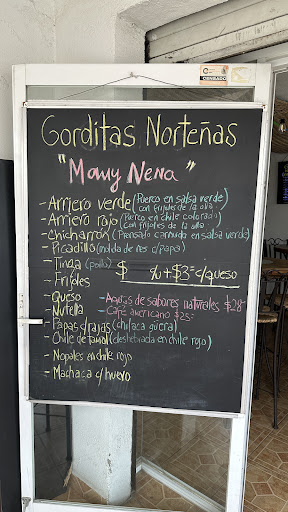 Gorditas Norteñas
"Mamy Nena"
- Arriero verde (Puerco en salsa verde)
con frijoles de la olla
- Arriero rojo (Puerco en chile colorado)
con frijoles de la olla
- Chicharrón (Prensado carnudo en salsa verde)
- Picadillo (molida de res c/papa)
- Tinga (pollo)
$ c/u + $3 = c/queso
- Frijoles
- Queso
- Aguas de sabores naturales $28
- Nutella
- Café americano $25=
- Papas c/rajas (chilaca güera)
- Chile de tamal (deshebrada en chile rojo)
- Nopales en chile rojo
- Machaca c/huevo